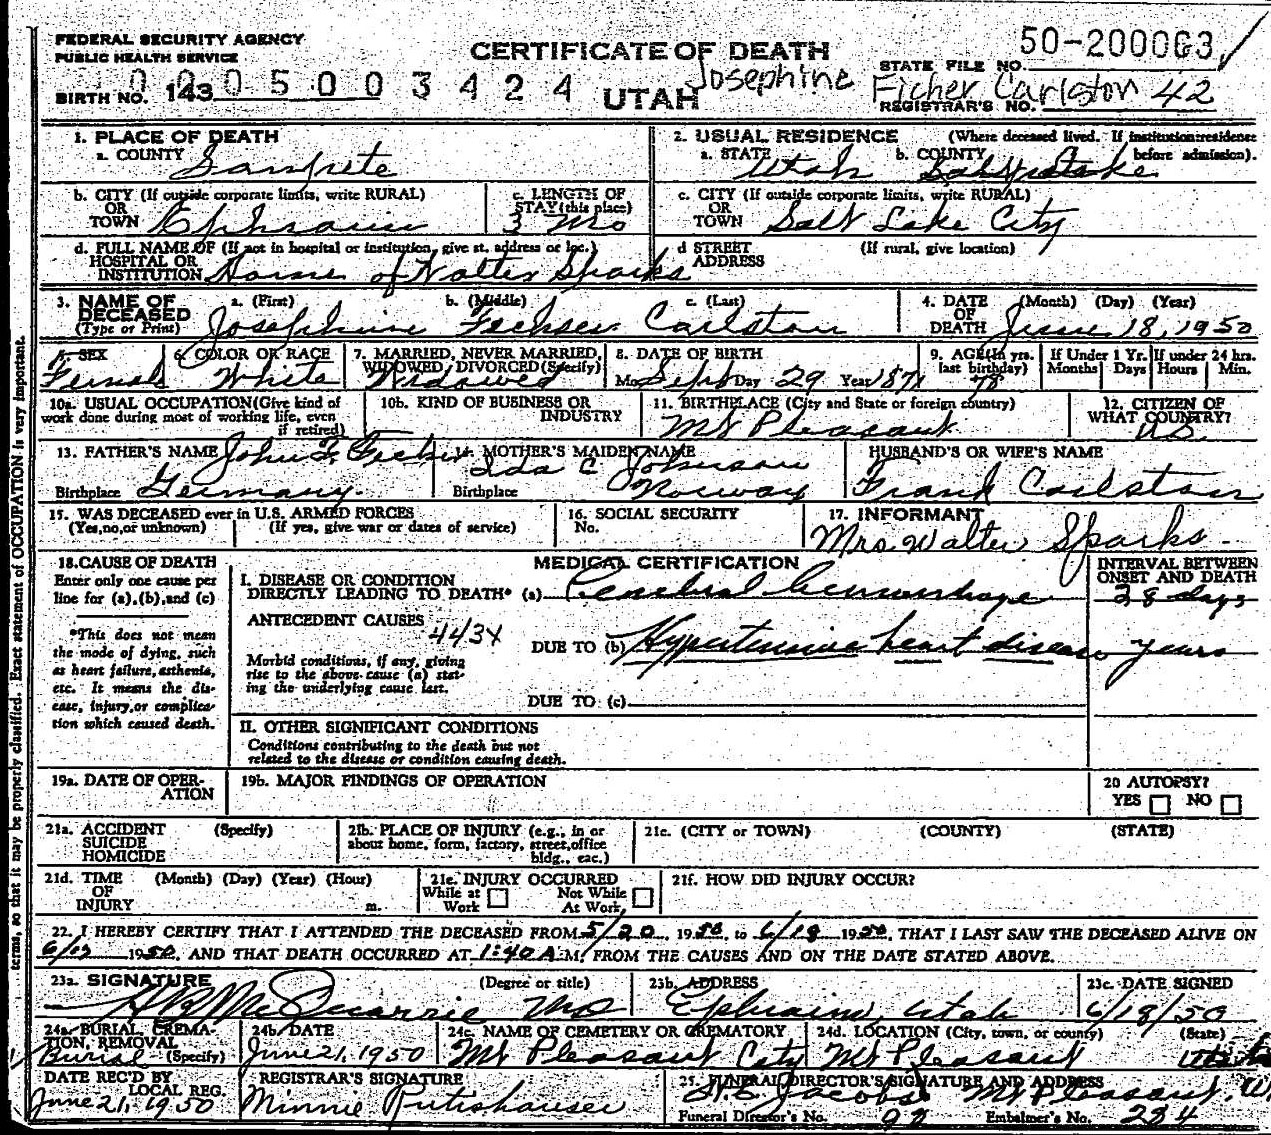 FEDERAL SECURITY AGENCY
PUBLIC HEALTH SERVICE
CERTIFICATE OF DEATH
UTAH
50-2000G3
STATE FILE NO.
BIRTH NO. 143 0005003424
Josephine Ficher Carlston 42
REGISTRAR'S NO.
1. PLACE OF DEATH
a. COUNTY Sanpete
2. USUAL RESIDENCE (Where deceased lived. If institution: residence before admission).
a. STATE Utah b. COUNTY Salt Lake
b. CITY (If outside corporate limits, write RURAL) OR TOWN Ephraim
c. LENGTH OF STAY (this place) 3 Mo
c. CITY (If outside corporate limits, write RURAL) OR TOWN Salt Lake City
d. FULL NAME OF (If not in hospital or institution, give st. address or loc.) HOSPITAL OR INSTITUTION Home of Walter Sparks
d STREET ADDRESS (If rural, give location)
3. NAME OF DECEASED (Type or Print) a. (First) b. (Middle) c. (Last)
Josephine Carlston
4. DATE OF DEATH (Month) (Day) (Year)
June 18, 1950
5. SEX Female
6. COLOR OR RACE White
7. MARRIED, NEVER MARRIED, WIDOWED, DIVORCED (Specify) Widowed
8. DATE OF BIRTH Mo. Sept Day 29 Year
9. AGE (In yrs. last birthday) 78
If Under 1 Yr. Months Days
If under 24 hrs. Hours Min.
10a. USUAL OCCUPATION (Give kind of work done during most of working life, even if retired)
10b. KIND OF BUSINESS OR INDUSTRY
11. BIRTHPLACE (City and State or foreign country) Mt Pleasant
12. CITIZEN OF WHAT COUNTRY? U.S.
13. FATHER'S NAME John F. Ficher
Birthplace Germany.
14. MOTHER'S MAIDEN NAME Ida C Johnson
Birthplace Norway
HUSBAND'S OR WIFE'S NAME
Frank Carlston
15. WAS DECEASED ever in U.S. ARMED FORCES
(Yes, no, or unknown) (If yes, give war or dates of service)
16. SOCIAL SECURITY No.
17. INFORMANT
Mrs. Walter Sparks.
18. CAUSE OF DEATH
Enter only one cause per line for (a), (b), and (c)
*This does not mean the mode of dying, such as heart failure, asthenia, etc. It means the disease, injury, or complication which caused death.
MEDICAL CERTIFICATION
INTERVAL BETWEEN ONSET AND DEATH
I. DISEASE OR CONDITION DIRECTLY LEADING TO DEATH* (a) Cerebral hemorrhage 28 days
ANTECEDENT CAUSES 443X
Morbid conditions, if any, giving rise to the above cause (a) stating the underlying cause last.
DUE TO (b) Hypertensive heart disease years
DUE TO (c)
II. OTHER SIGNIFICANT CONDITIONS
Conditions contributing to the death but not related to the disease or condition causing death.
19a. DATE OF OPERATION
19b. MAJOR FINDINGS OF OPERATION
20 AUTOPSY?
YES NO
21a. ACCIDENT SUICIDE HOMICIDE (Specify)
21b. PLACE OF INJURY (e.g., in or about home, form, factory, street, office bldg., eac.)
21c. (CITY or TOWN) (COUNTY) (STATE)
21d. TIME OF INJURY (Month) (Day) (Year) (Hour) m.
21e. INJURY OCCURRED
While at Work Not While At Work
21f. HOW DID INJURY OCCUR?
22. I HEREBY CERTIFY THAT I ATTENDED THE DECEASED FROM 5/20, 1950, to 6/18 1950, THAT I LAST SAW THE DECEASED ALIVE ON
1950, AND THAT DEATH OCCURRED AT 1:40 A M. FROM THE CAUSES AND ON THE DATE STATED ABOVE.
23a. SIGNATURE (Degree or title)
McQuarrie MD
23b. ADDRESS
Ephraim, Utah
23c. DATE SIGNED
6/18/50
24a. BURIAL, CREMATION, REMOVAL (Specify) Burial
24b. DATE
June 21, 1950
24c. NAME OF CEMETERY OR CREMATORY
Mt Pleasant City
24d. LOCATION (City, town, or county) (State)
Mt Pleasant
DATE REC'D BY LOCAL REG.
June 21, 1950
REGISTRAR'S SIGNATURE
Minnie Rutishauser
25. FUNERAL DIRECTOR'S SIGNATURE AND ADDRESS
Jacobs Mt Pleasant,
Funeral Director's No. Embalmer's No. 234
terms, so that it may be properly classified. Exact statement of OCCUPATION is very important.